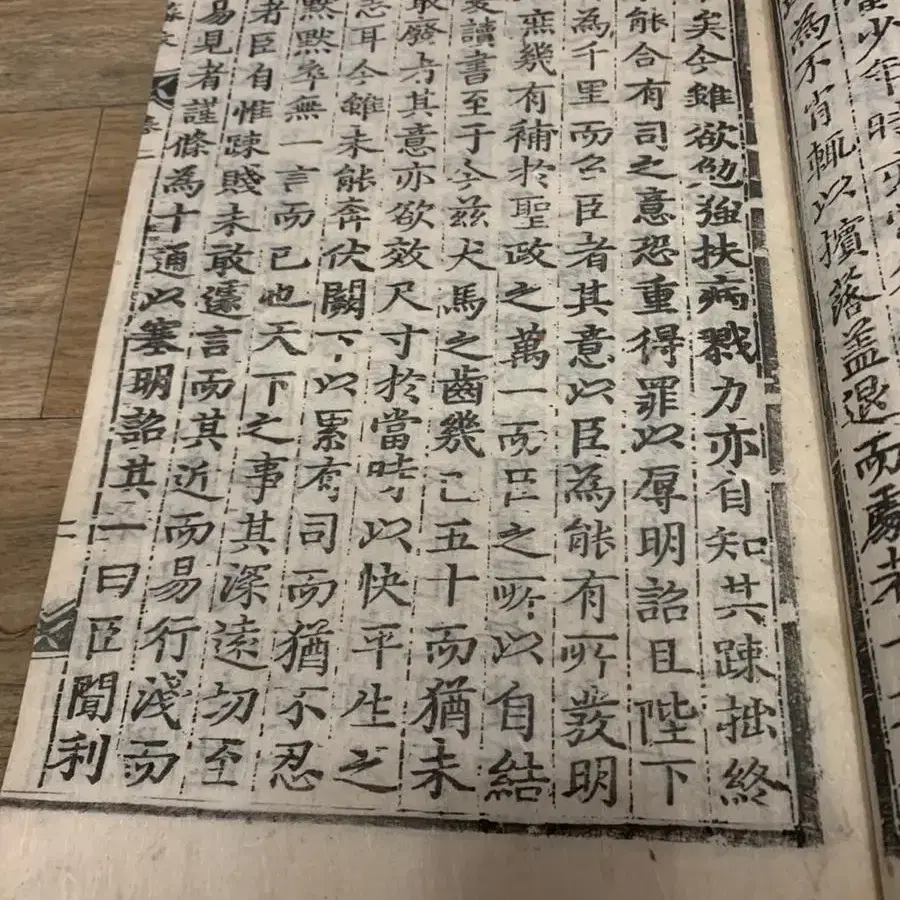 少年時亦嘗
為不肖輒以擯落盖退而處者
矣今雖欲勉強扶病戮力亦自知其踈拙終
能合有司之意恐重得罪以辱明詔且陛下
為千里而召臣者其意以臣為能有所發明
庶幾有補於聖政之萬一而臣之所以自結
髮讀書至于今茲犬馬之齒幾已五十而猶未
敢廢者其意亦欲效尺寸於當時以快平生之
志耳今雖未能奔伏闕下以累有司而猶不忍
默默卒無一言而已也天下之事其深遠切至
者臣自惟踈賤未敢遽言而其近而易行淺而
易見者謹條為十通以塞明詔其一曰臣聞利